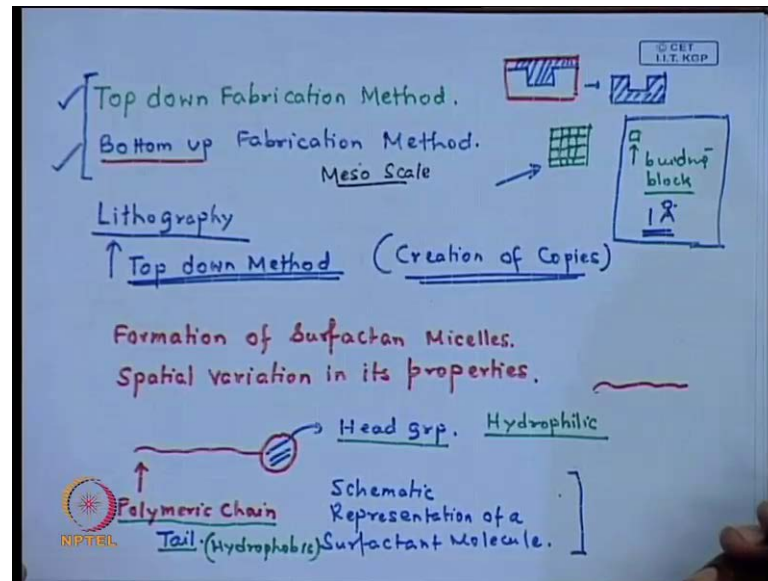 © CET
I.I.T. KGP
Top down Fabrication Method.
Bottom up Fabrication Method.
Meso Scale
building
block
1 Å
Lithography
Top down Method (Creation of Copies)
Formation of Surfactan Micelles.
Spatial variation in its properties.
Head grp. Hydrophilic
Polymeric Chain
Tail. (Hydrophobic)
Schematic
Representation of a
Surfactant Molecule.
NPTEL